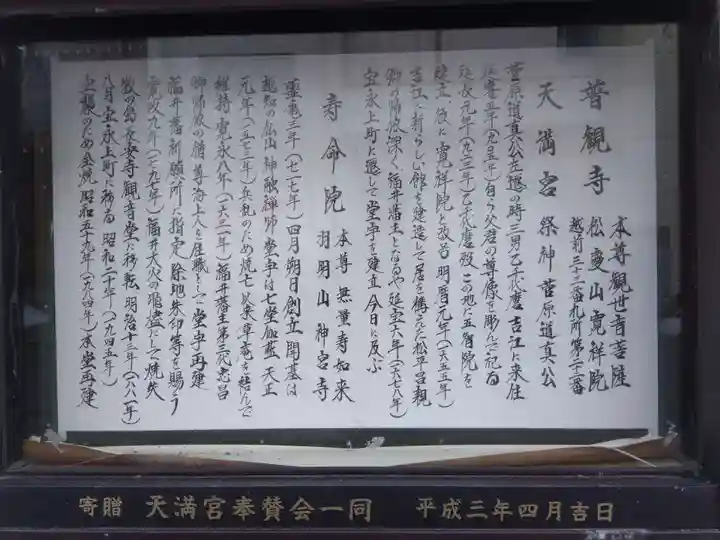 普観寺
本尊観世音菩薩
松慶山寛祥院
越前三十三番札所第二十二番
天満宮 祭神菅原道真公
菅原道真公左遷の時三男乙千代麿吉江に来住
延喜五年(九〇五年)自ら父君の尊像を彫んで祀る
延長元年(九二三年)乙千代麿歿 この地に五智院を
建立、後に寛祥院と改号 明暦元年(一六五五年)
吉江に新らしい館を建造して居を構えた松平昌親
卿の帰依深く福井藩主となるや延宝六年(一六七八年)
宝永上町に遷して堂宇を建立 今日に及ぶ
寿命院
本尊 無量寿如来
羽明山神宮寺
霊亀三年(七一七年)四月朔日創立 開基は
越知の仏山神融禅師 堂宇は七堂伽藍 天正
元年(一五七三年)兵乱のため焼亡 以来草庵を結んで
維持 寛永八年(一六三一年)福井藩主第三代忠昌
卿帰依の僧尊海上人を住職として堂宇再建
福井藩祈願所に指定 除地朱印等を賜う
寛政九年(一七九七年)福井大火の罹災にして焼失
牧の島長安寺観音堂に移転 明治十三年(一八八一年)
八月宝永上町に移る 昭和二十年(一九四五年)
空襲のため全焼 昭和五十九年(一九八四年)本堂再建
寄贈 天満宮奉賛会一同 平成三年四月吉日